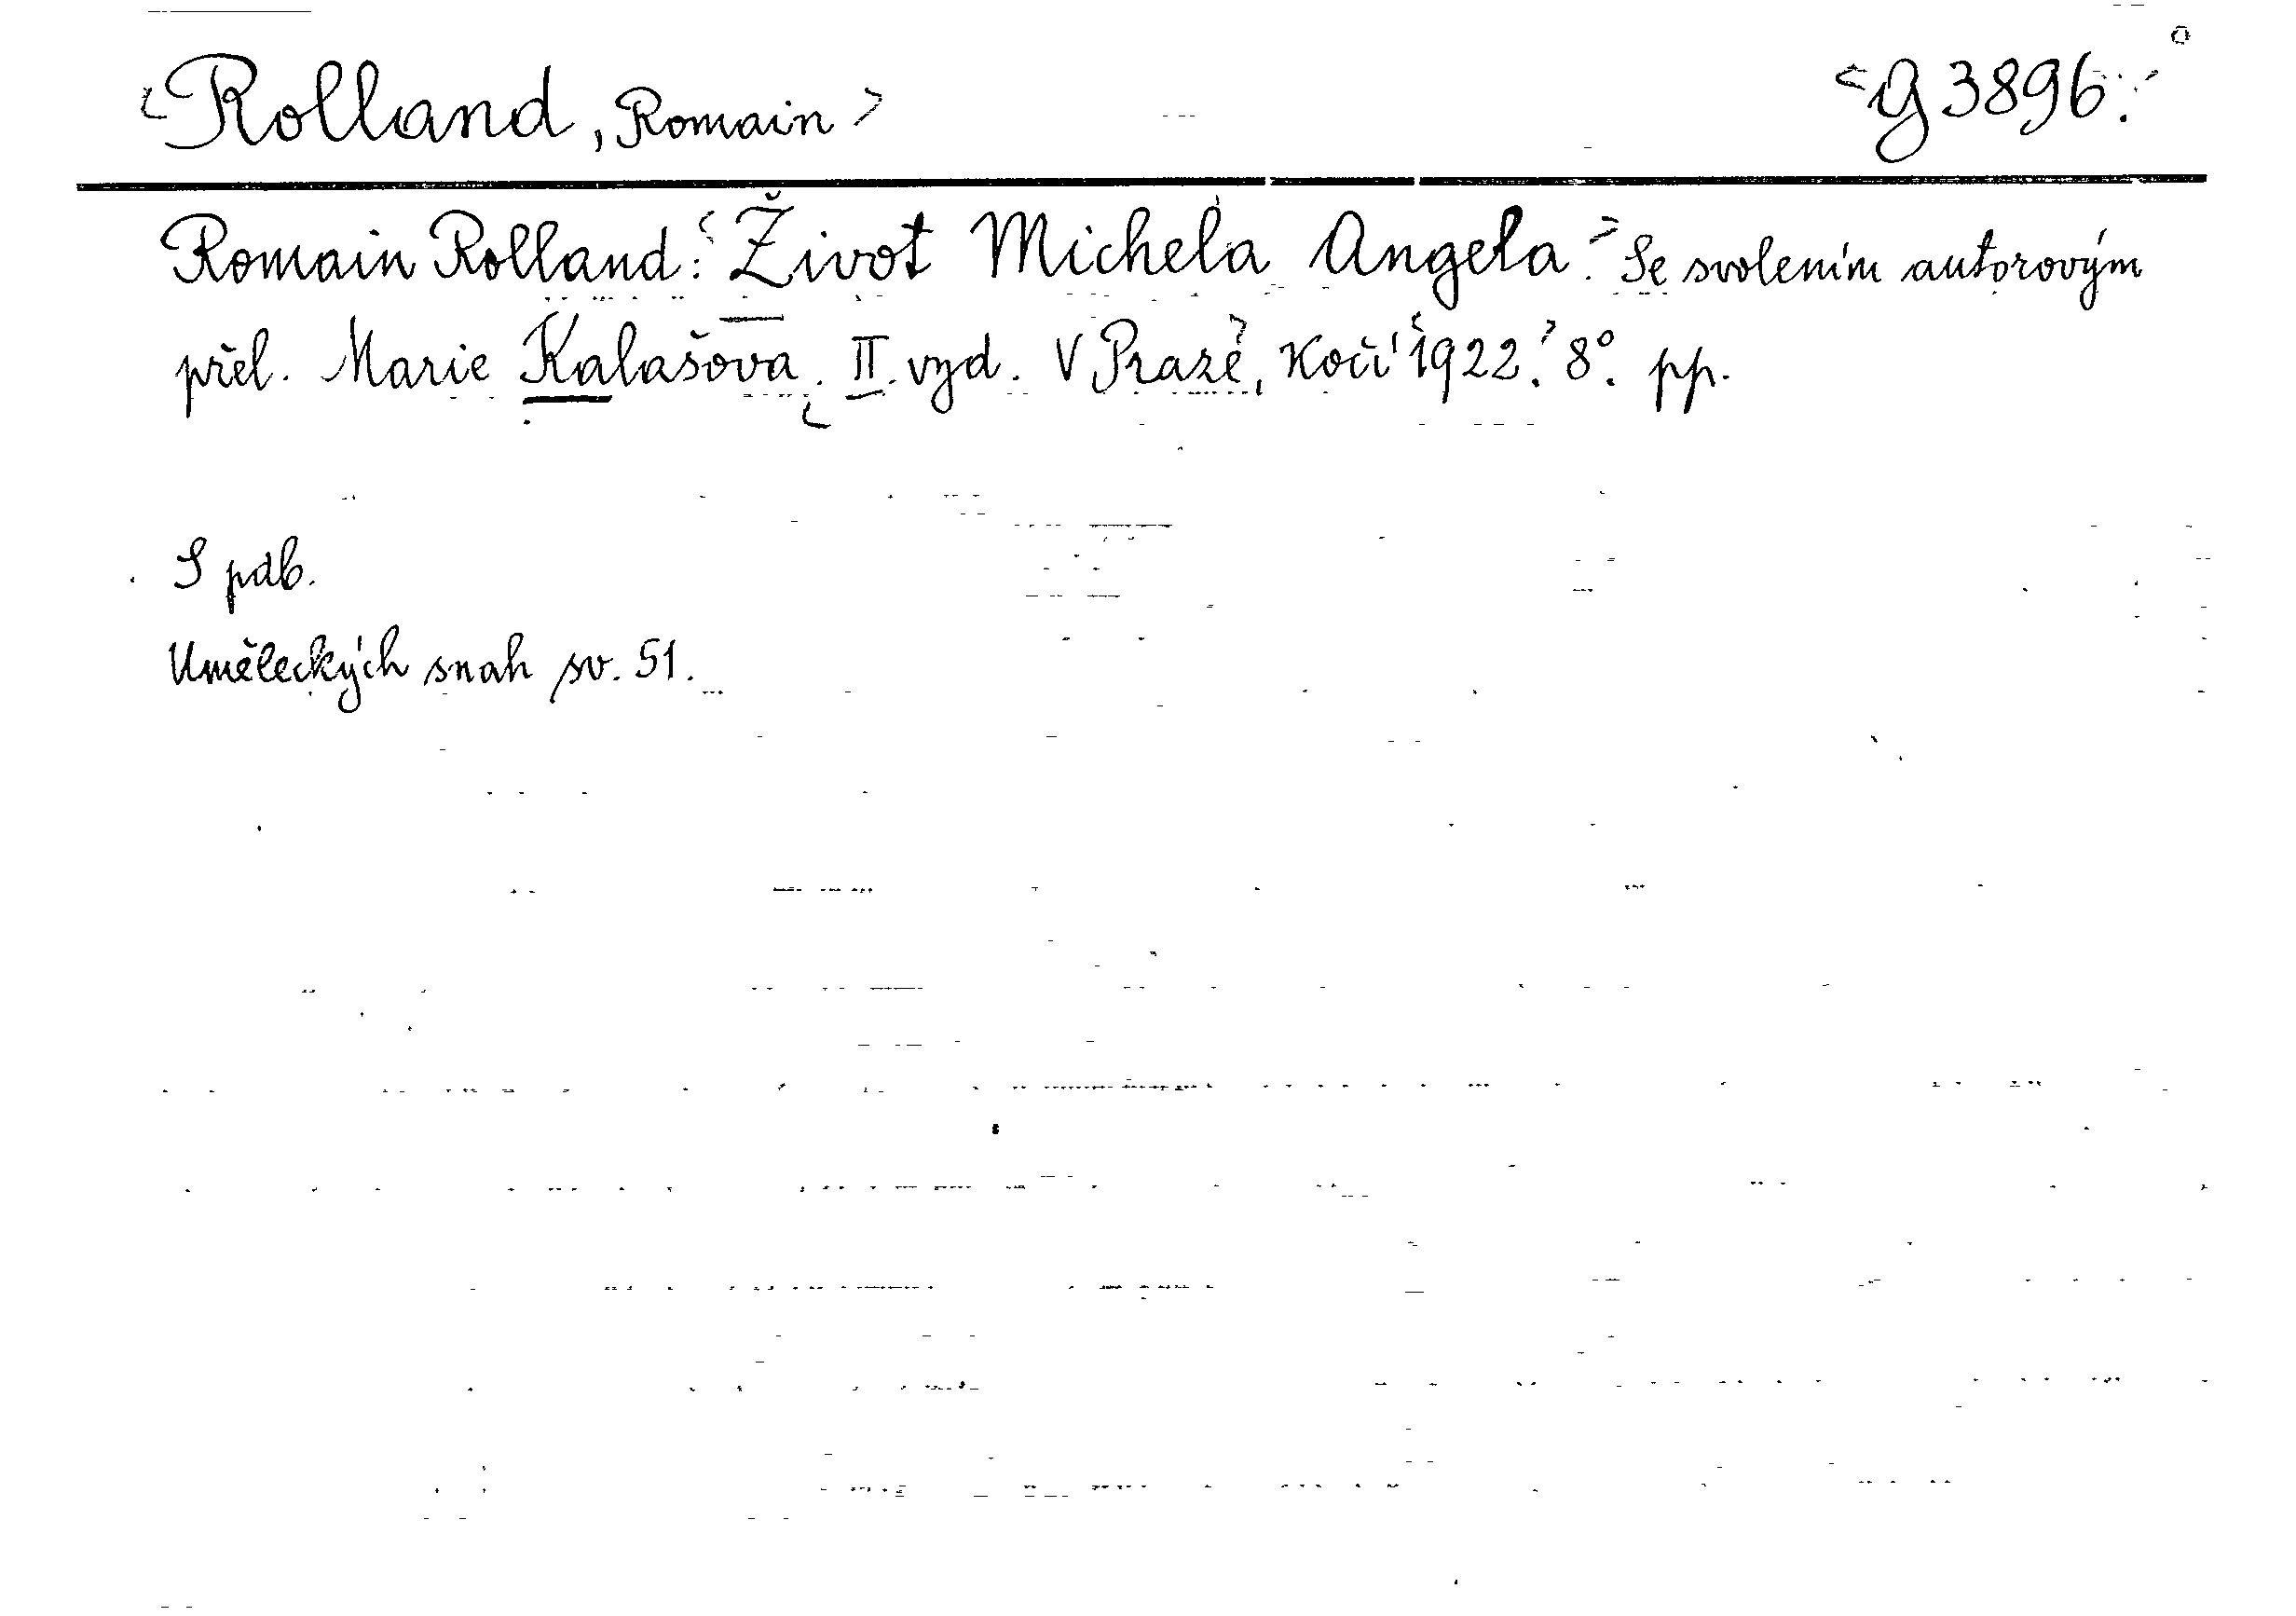 <Rolland, Romain> <g 3896.>
Romain Rolland: <Život Michela Angela.> Se svolením autorovým
přel. Marie Kalašova. <II. vyd. V Praze>, Kočí <1922.> 8°. pp.
S pdb.
Uměleckých snah sv. 51.